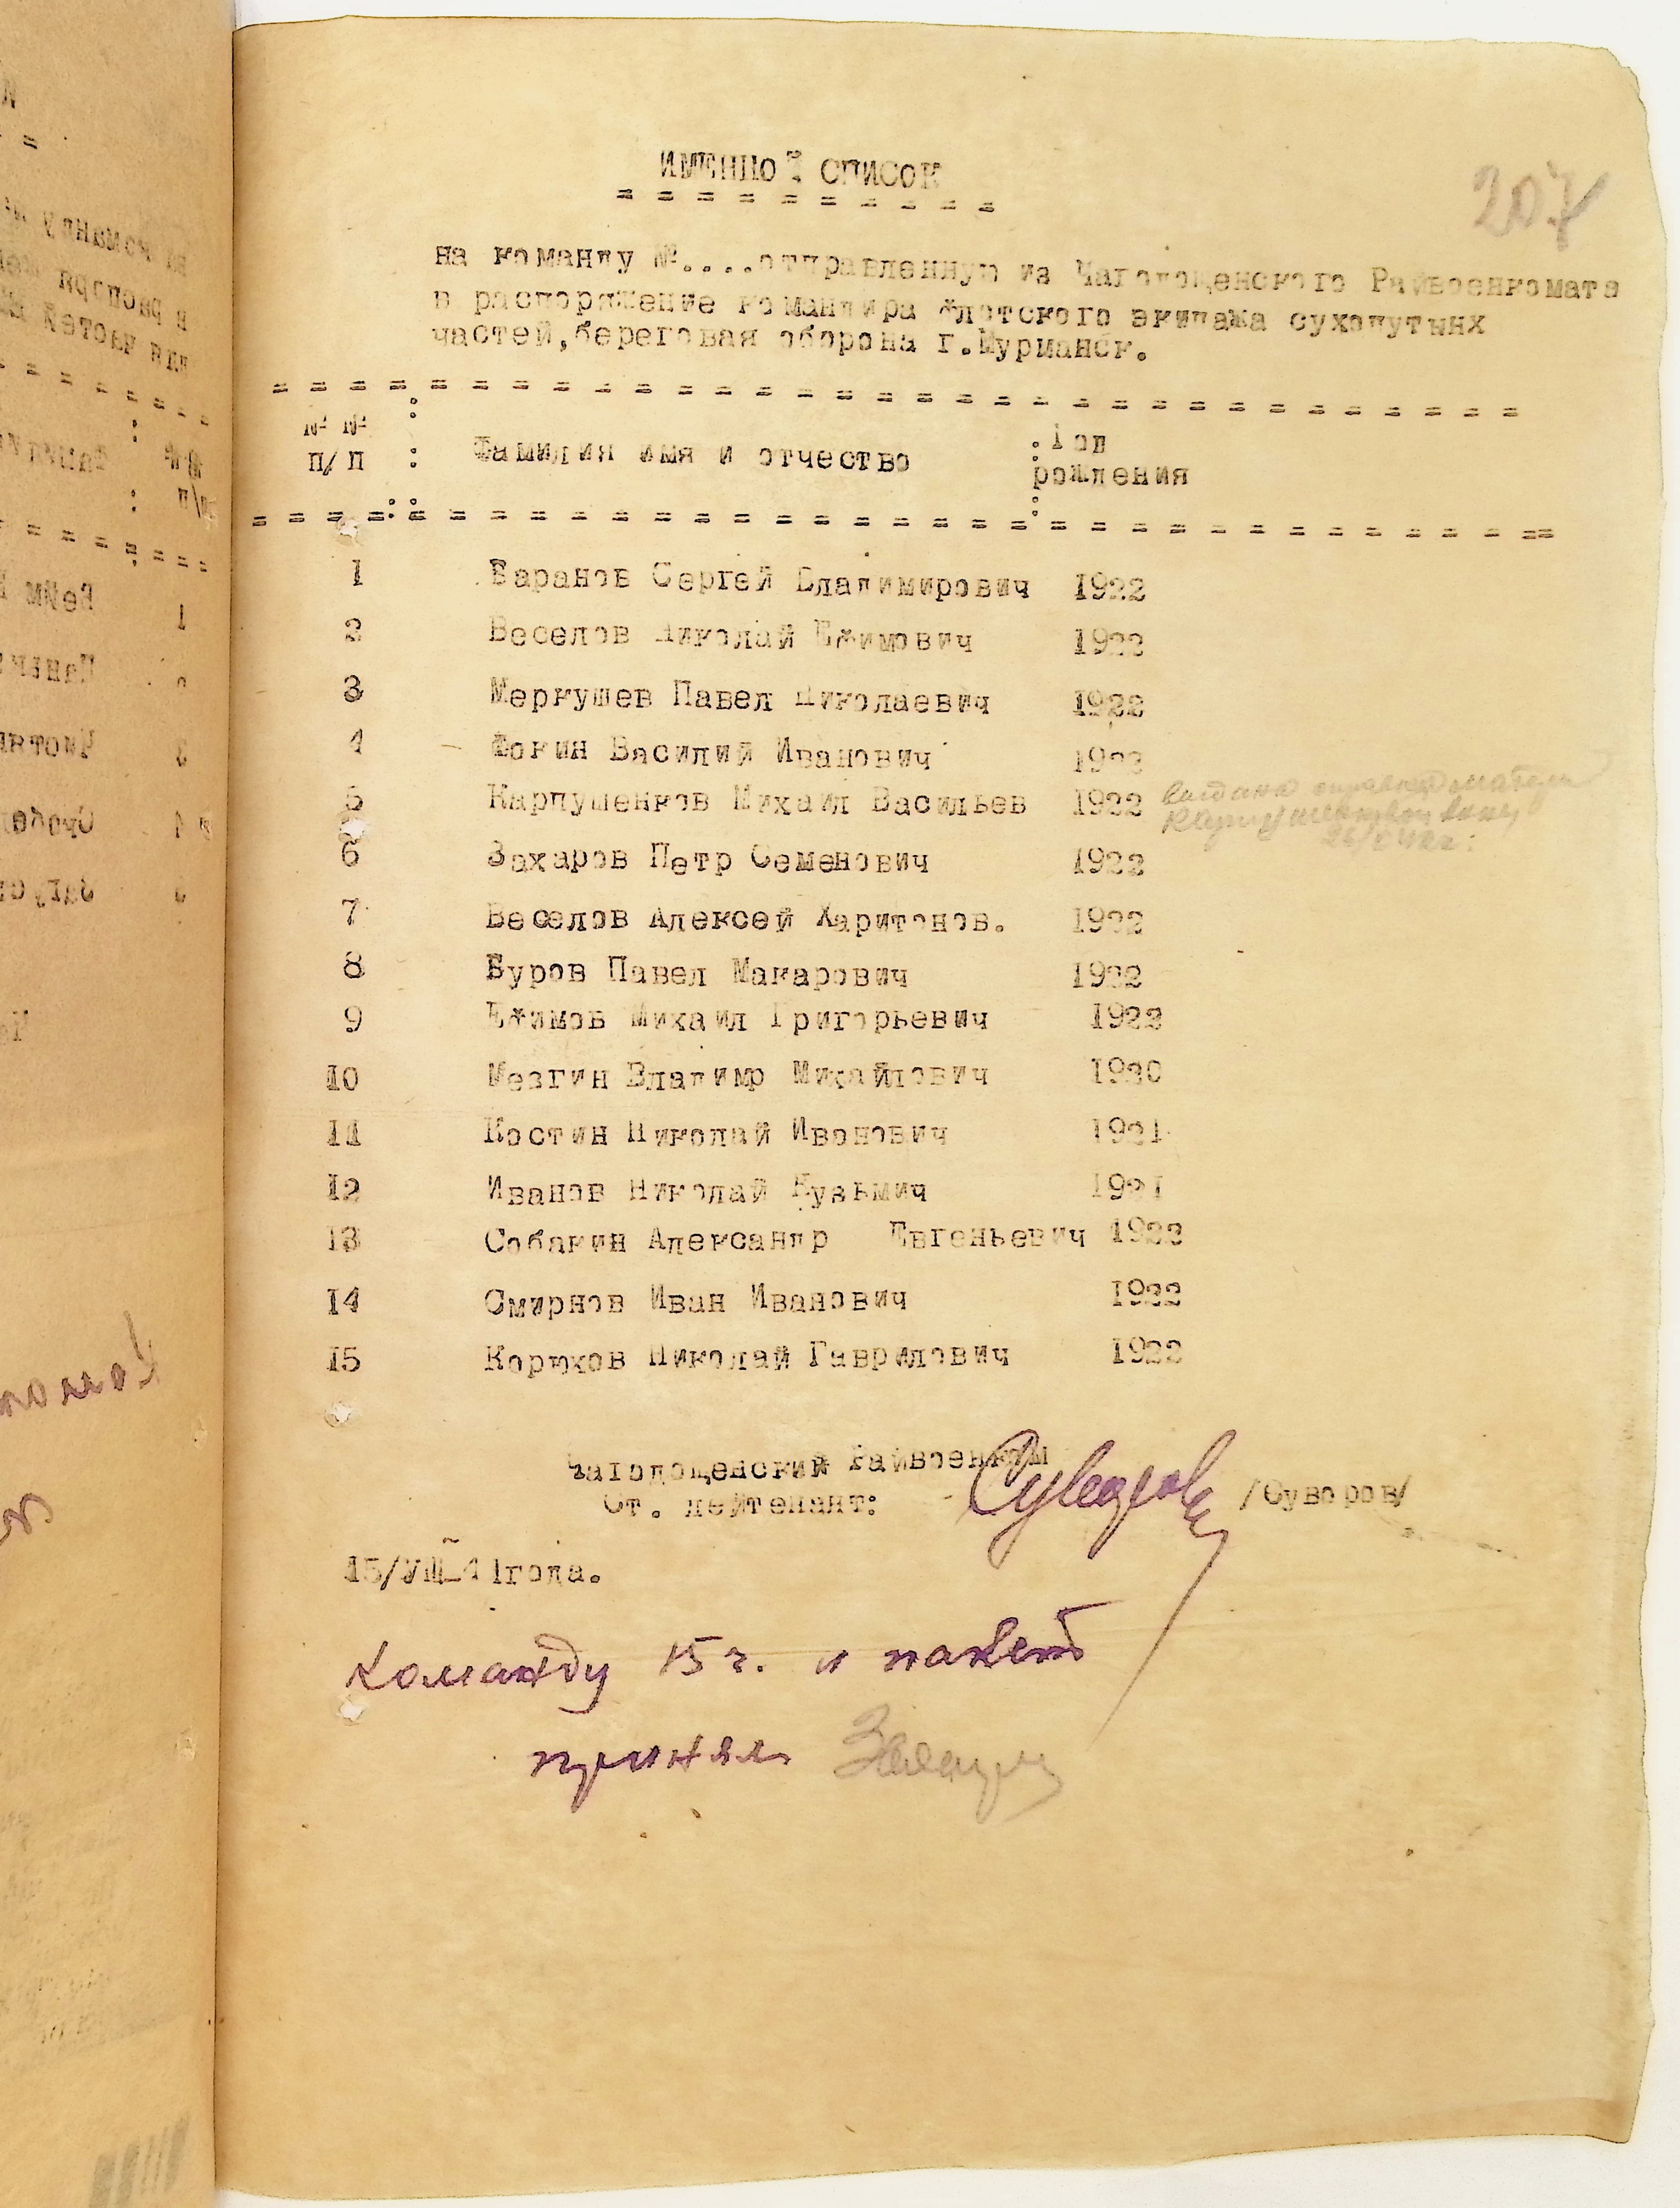 207
ИМЕННОЙ СПИСОК
= = = = = = = = = =
на команду №....отправленную из Чагодощенского Райвоенкомата
в распоряжение командира флотского экипажа сухопутынх
частей,береговая оборона г.Мурманск.
№ № : Фамилия имя и отчество : Год
п/п : рождения
1 Баранов Сергей Владимирович 1922
2 Веселов Николай Ефимович 1922
3 Меркушев Павел Николаевич 1922
4 Фокин Василий Иванович 1922
5 Карпушенков Михаил Васильев 1922 выдана справка матери
6 Захаров Петр Семенович 1922
7 Веселов Алексей Харитонов. 1922
8 Буров Павел Макарович 1922
9 Ефимов Михаил Григорьевич 1922
10 Мезгин Владимр Михайлович 1920
11 Костин Николай Ивонович 1921
12 Иванов Николай Кузьмич 1921
13 Собакин Александр Евгеньевич 1922
14 Смирнов Иван Иванович 1922
15 Корюков Николай Гаврилович 1922
Чагодощенский Райвоенком
Ст. лейтенант: Суворов /Суворов/
15/УШ-41года.
Команду 15 ч. и пакет
принял